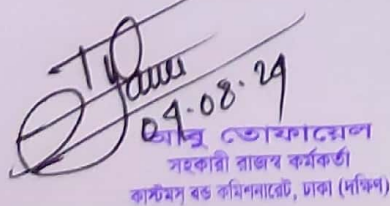 04.08.24
আবু তোফায়েল
সহকারী রাজস্ব কর্মকর্তা
কাস্টমস বন্ড কমিশনারেট, ঢাকা (দক্ষিণ)